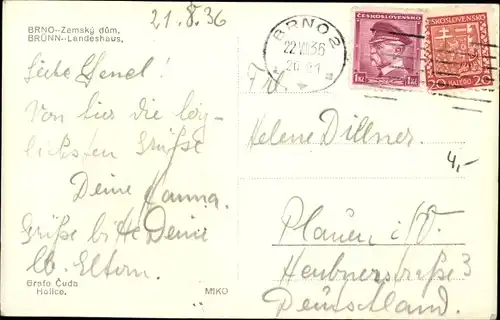 BRNO-Zemský dům.
BRÜNN-Landeshaus.
21.8.36
BRNO 2
22 VIII 36
20
ČESKOSLOVENSKO
1Kč 1Kč
ČESKOSLOVENSKO
20 HALÉŘŮ 20
Liebe
Von hier die herz-
lichsten Grüße
Deine Hanna.
Grüße bitte Deine
lb. Eltern.
Helene Dillner
4,-
Plauen i/V.
Heubnerstraße 3
Deutschland.
Grafo Čuda
Holice.
MIKO